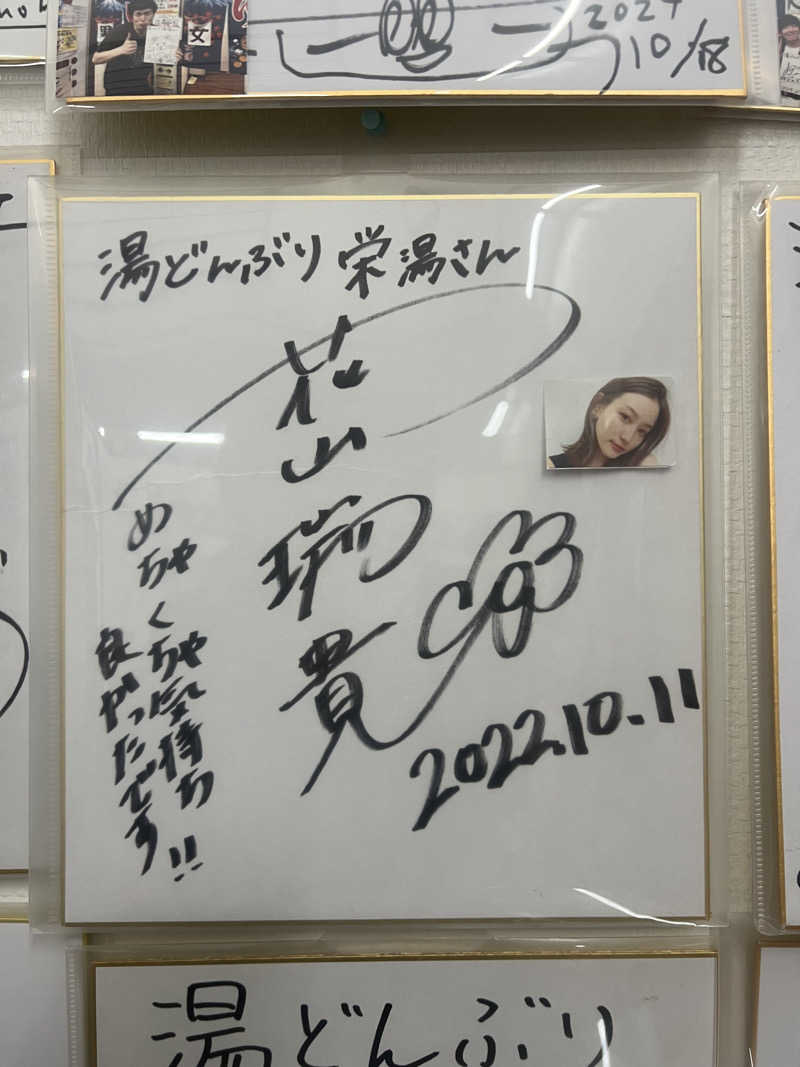 男
女
2024
10/18
湯どんぶり 栄湯さん
花山瑞貴
めちゃくちゃ気持ち
良かったです!!
2022.10.11
湯どんぶり